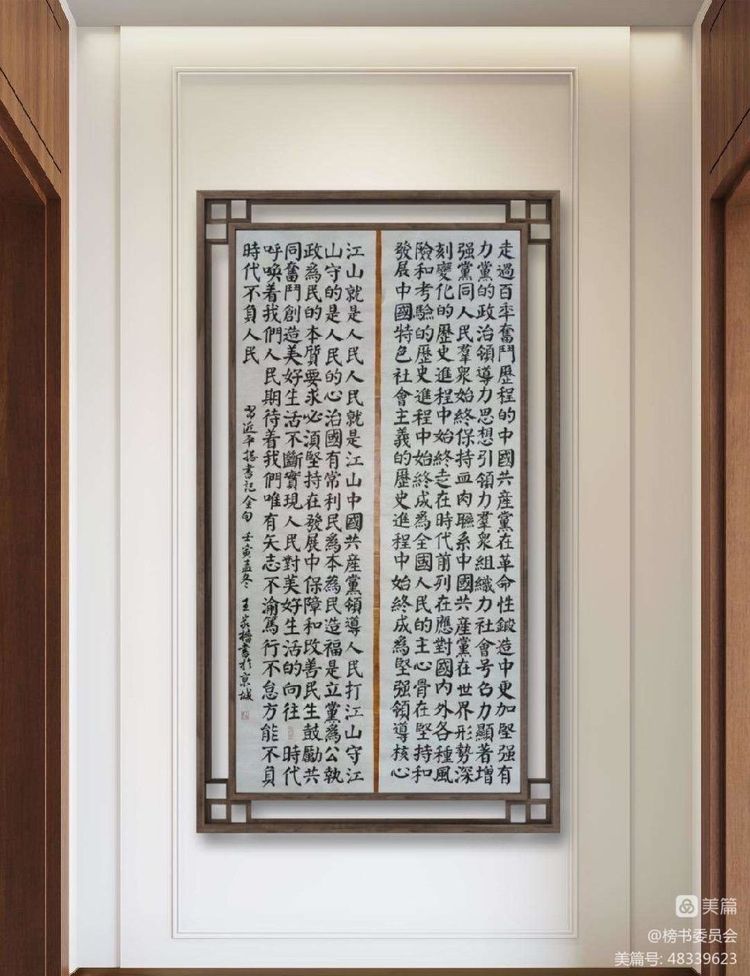 走過百年奮鬥歷程的中國共産黨在革命性鍛造中更加堅强有
力黨的政治領導力思想引領力羣衆組織力社會号召力顯著增
强黨同人民羣衆始終保持血肉聯系中國共産黨在世界形勢深
刻變化的歷史進程中始終走在時代前列在應對國内外各種風
險和考驗的歷史進程中始終成為全國人民的主心骨在堅持和
發展中國特色社會主義的歷史進程中始終成為堅强領導核心
江山就是人民人民就是江山中國共産黨領導人民打江山守江
山守的是人民的心治國有常利民為本為民造福是立黨為公執
政為民的本質要求必須堅持在發展中保障和改善民生鼓勵共
同奮鬥創造美好生活不斷實現人民對美好生活的向往 時代
呼唤着我們人民期待着我們唯有矢志不渝篤行不怠方能不負
時代不負人民
習近平總書記金句 壬寅孟冬 王 書於京城
美篇
@榜书委员会
美篇号: 48339623